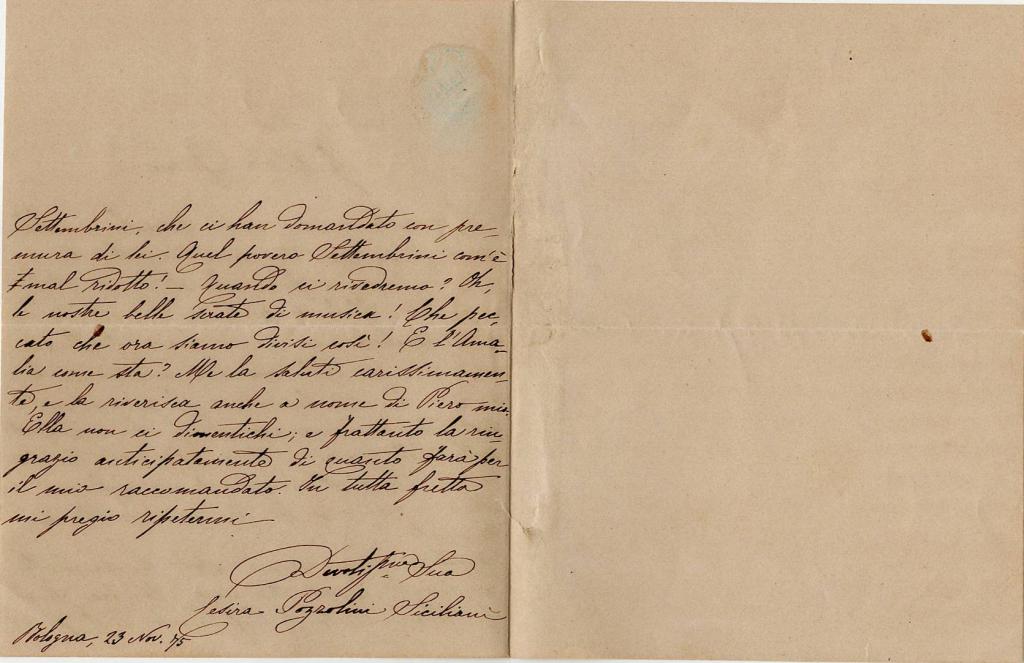 Settembrini, che ci han domandato con pre-
mura di lei. Quel povero Settembrini com'è
mal ridotto! — Quando ci rivedremo? Oh,
le nostre belle serate di musica! Che pec-
cato che ora siamo divisi così! E l'Ama-
lia come sta? Me la saluti carissimamen-
te, e la riverisca anche a nome di Piero mio.
Ella non ci dimentichi; e frattanto la rin-
grazio anticipatamente di quanto farà per
il mio raccomandato. In tutta fretta
mi pregio ripetermi
Devotissma Sua
Cesira Pozzolini Siciliani
Bologna, 23 Nov. 75